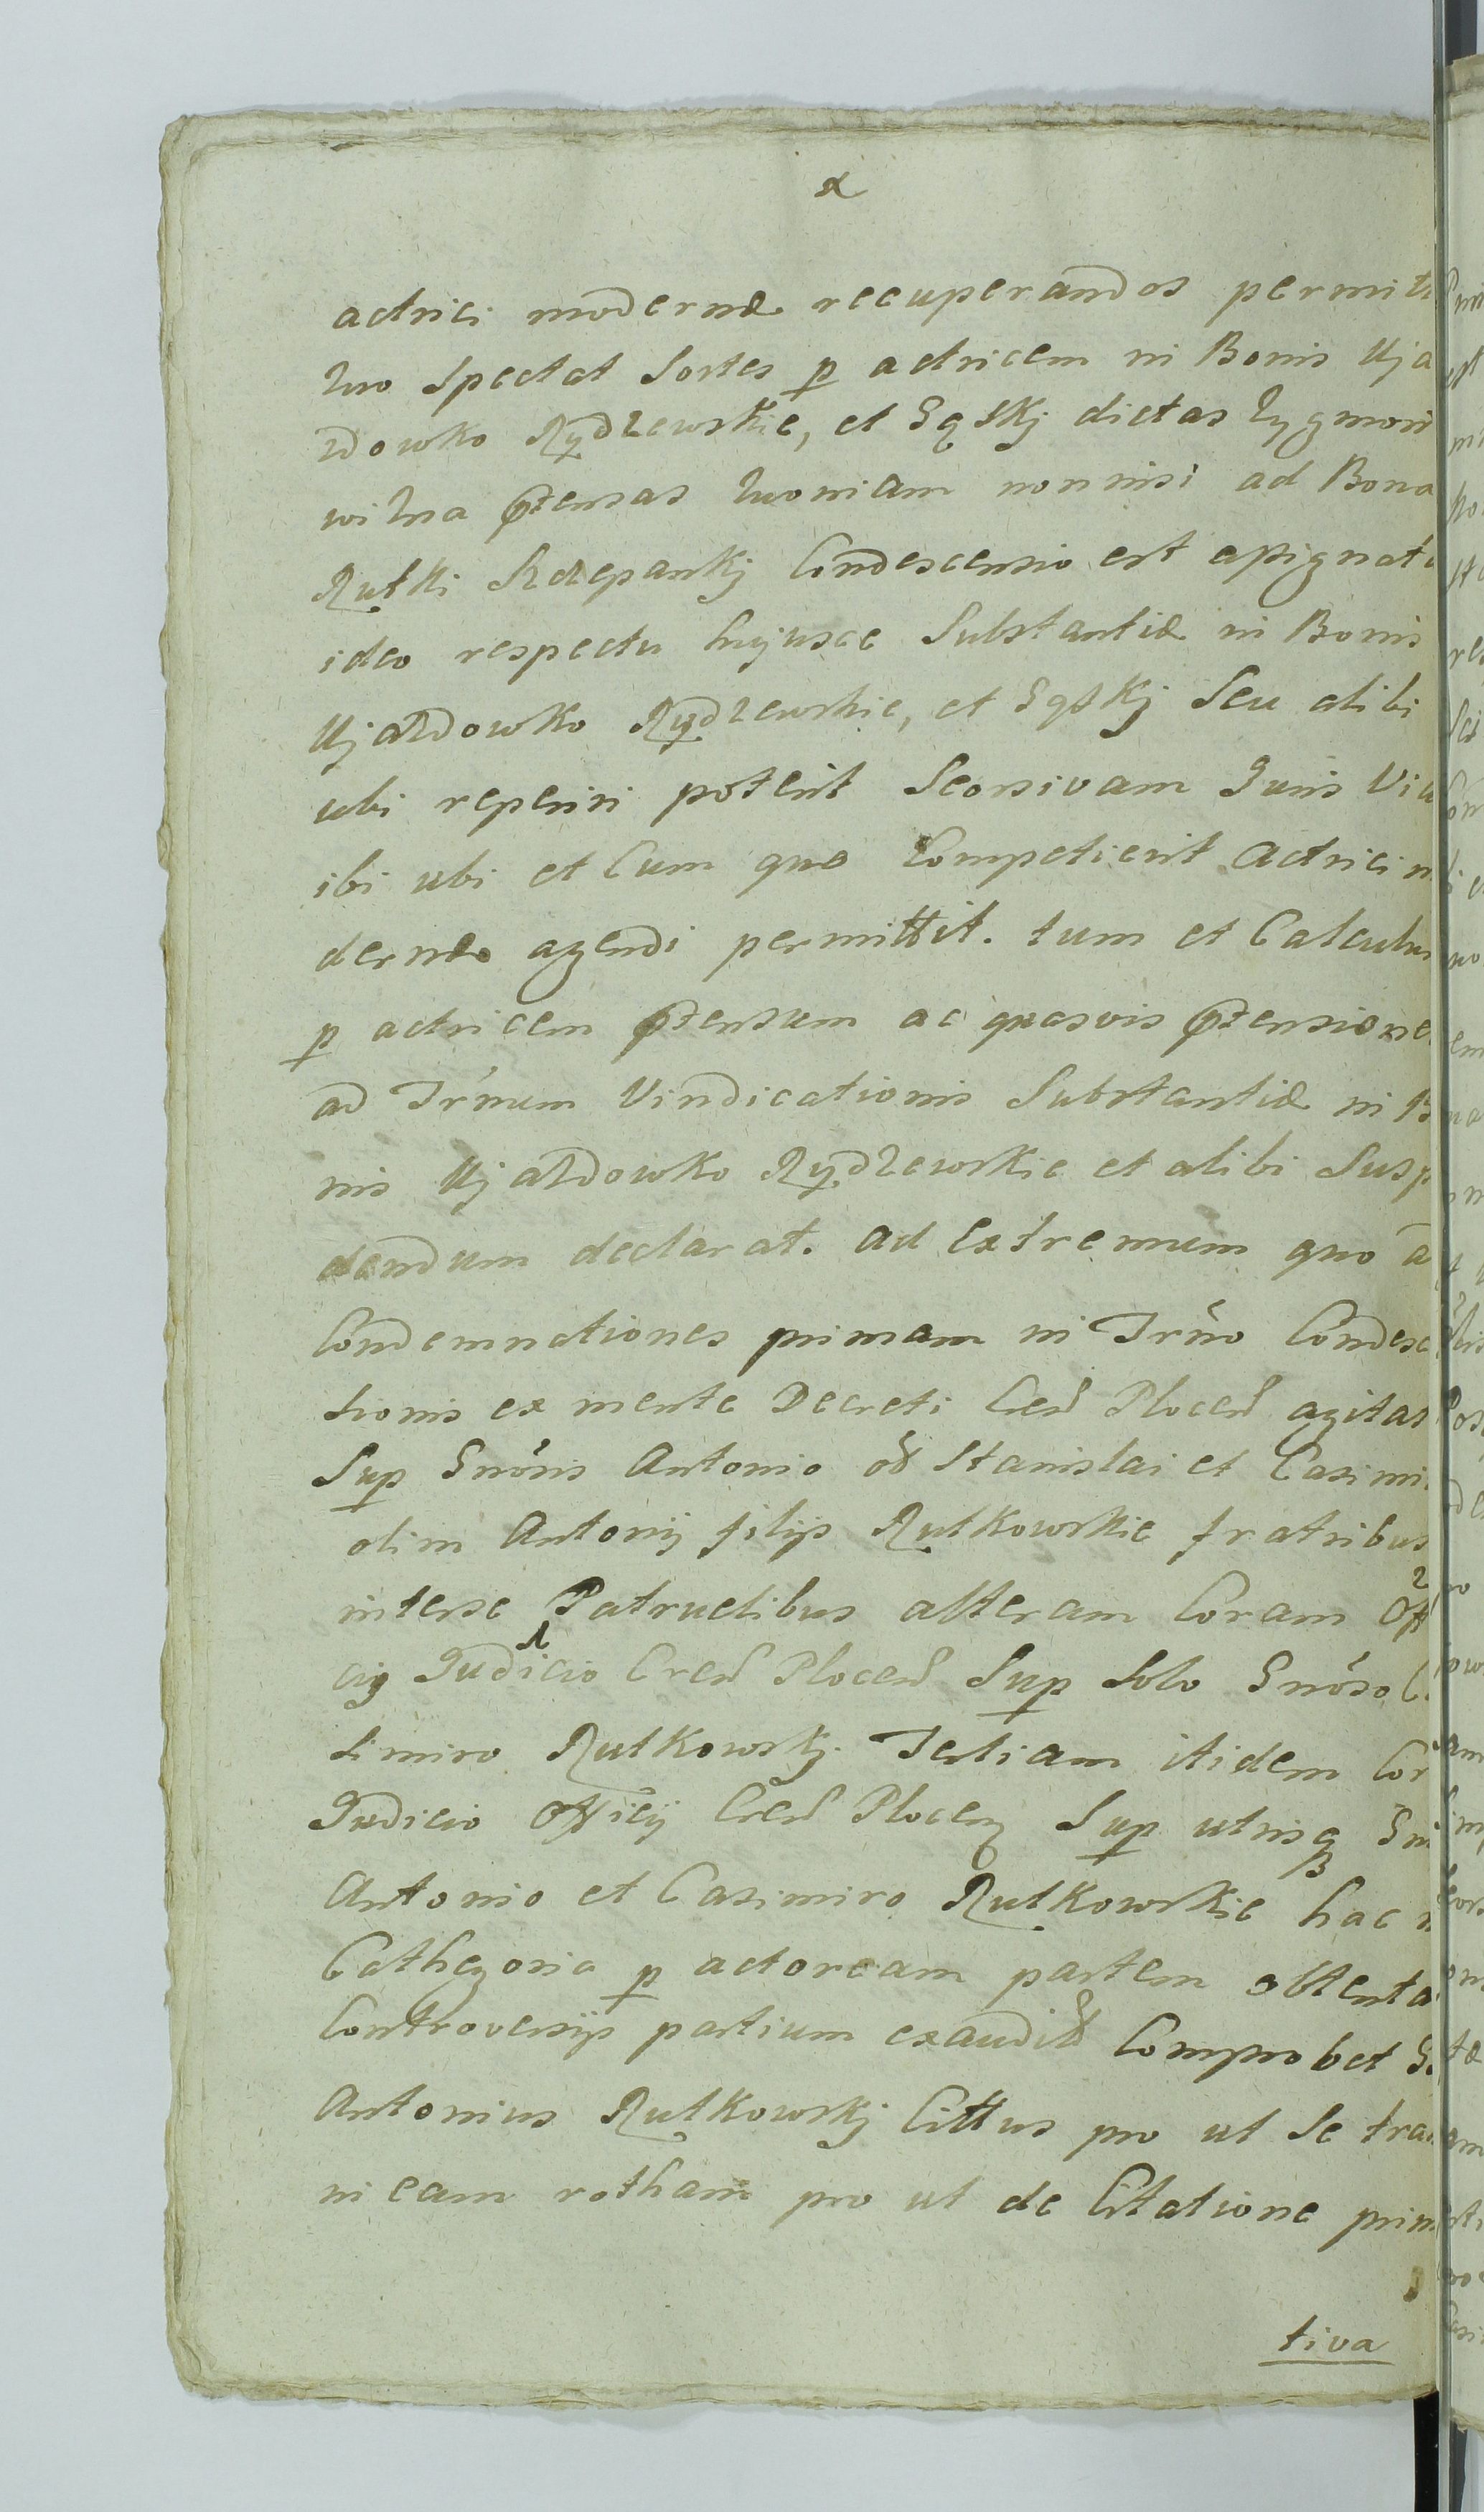 actrici modernæ recuperandos permit
quo Spectat Sortes p actricem in Bonis Uja
zdowko Rydzewskie, et Gąskj dictas Zygmon
wizna prtensas quoniam nonnisi ad Bona
Rutki Szczepankj Condescensio est assignata
ideo respectu hujusce Substantiæ in Bonis
Ujazdowko Rydzewskie, et Gąskj Seu alibi
ubi reperiri poterit Seorsivam Juris Vi
ibi ubi et Cum quo Competierit Actrici
dernæ agendi permittit. tum et Calculu
p actricem prtensum ac quasvis prtensione
ad Trnum Vindicationis Substantiæ in B
nis Ujazdowko Rydzewskie et alibi Susp
dendum declarat. ad extremum quo a
Condemnationes primam in Trno Condesc
sionis ex mente Decreti Cren Plocen agitat
Sup Gnosis Antonio ol Stanislai et Casimi
olim Antonij filijs Rutkowskie fratribus
interse Patruelibus alteram Coram Offi
cij Judicio Cren Plocen Sup Solo Gnoso C
simiro Rutkowskj. Tertiam itidem Cor
Judicio Officij Cren Plocen Sup utrisq Gn
Antonio et Casimiro Rutkowskie hac
Cathegoria p actoream partem obtenta
Controversijs partium exaudit Comprobet G
Antonius Rutkowskj Cittus pro ut Se tra
in eam rotham pro ut de Citatione prim
tiva